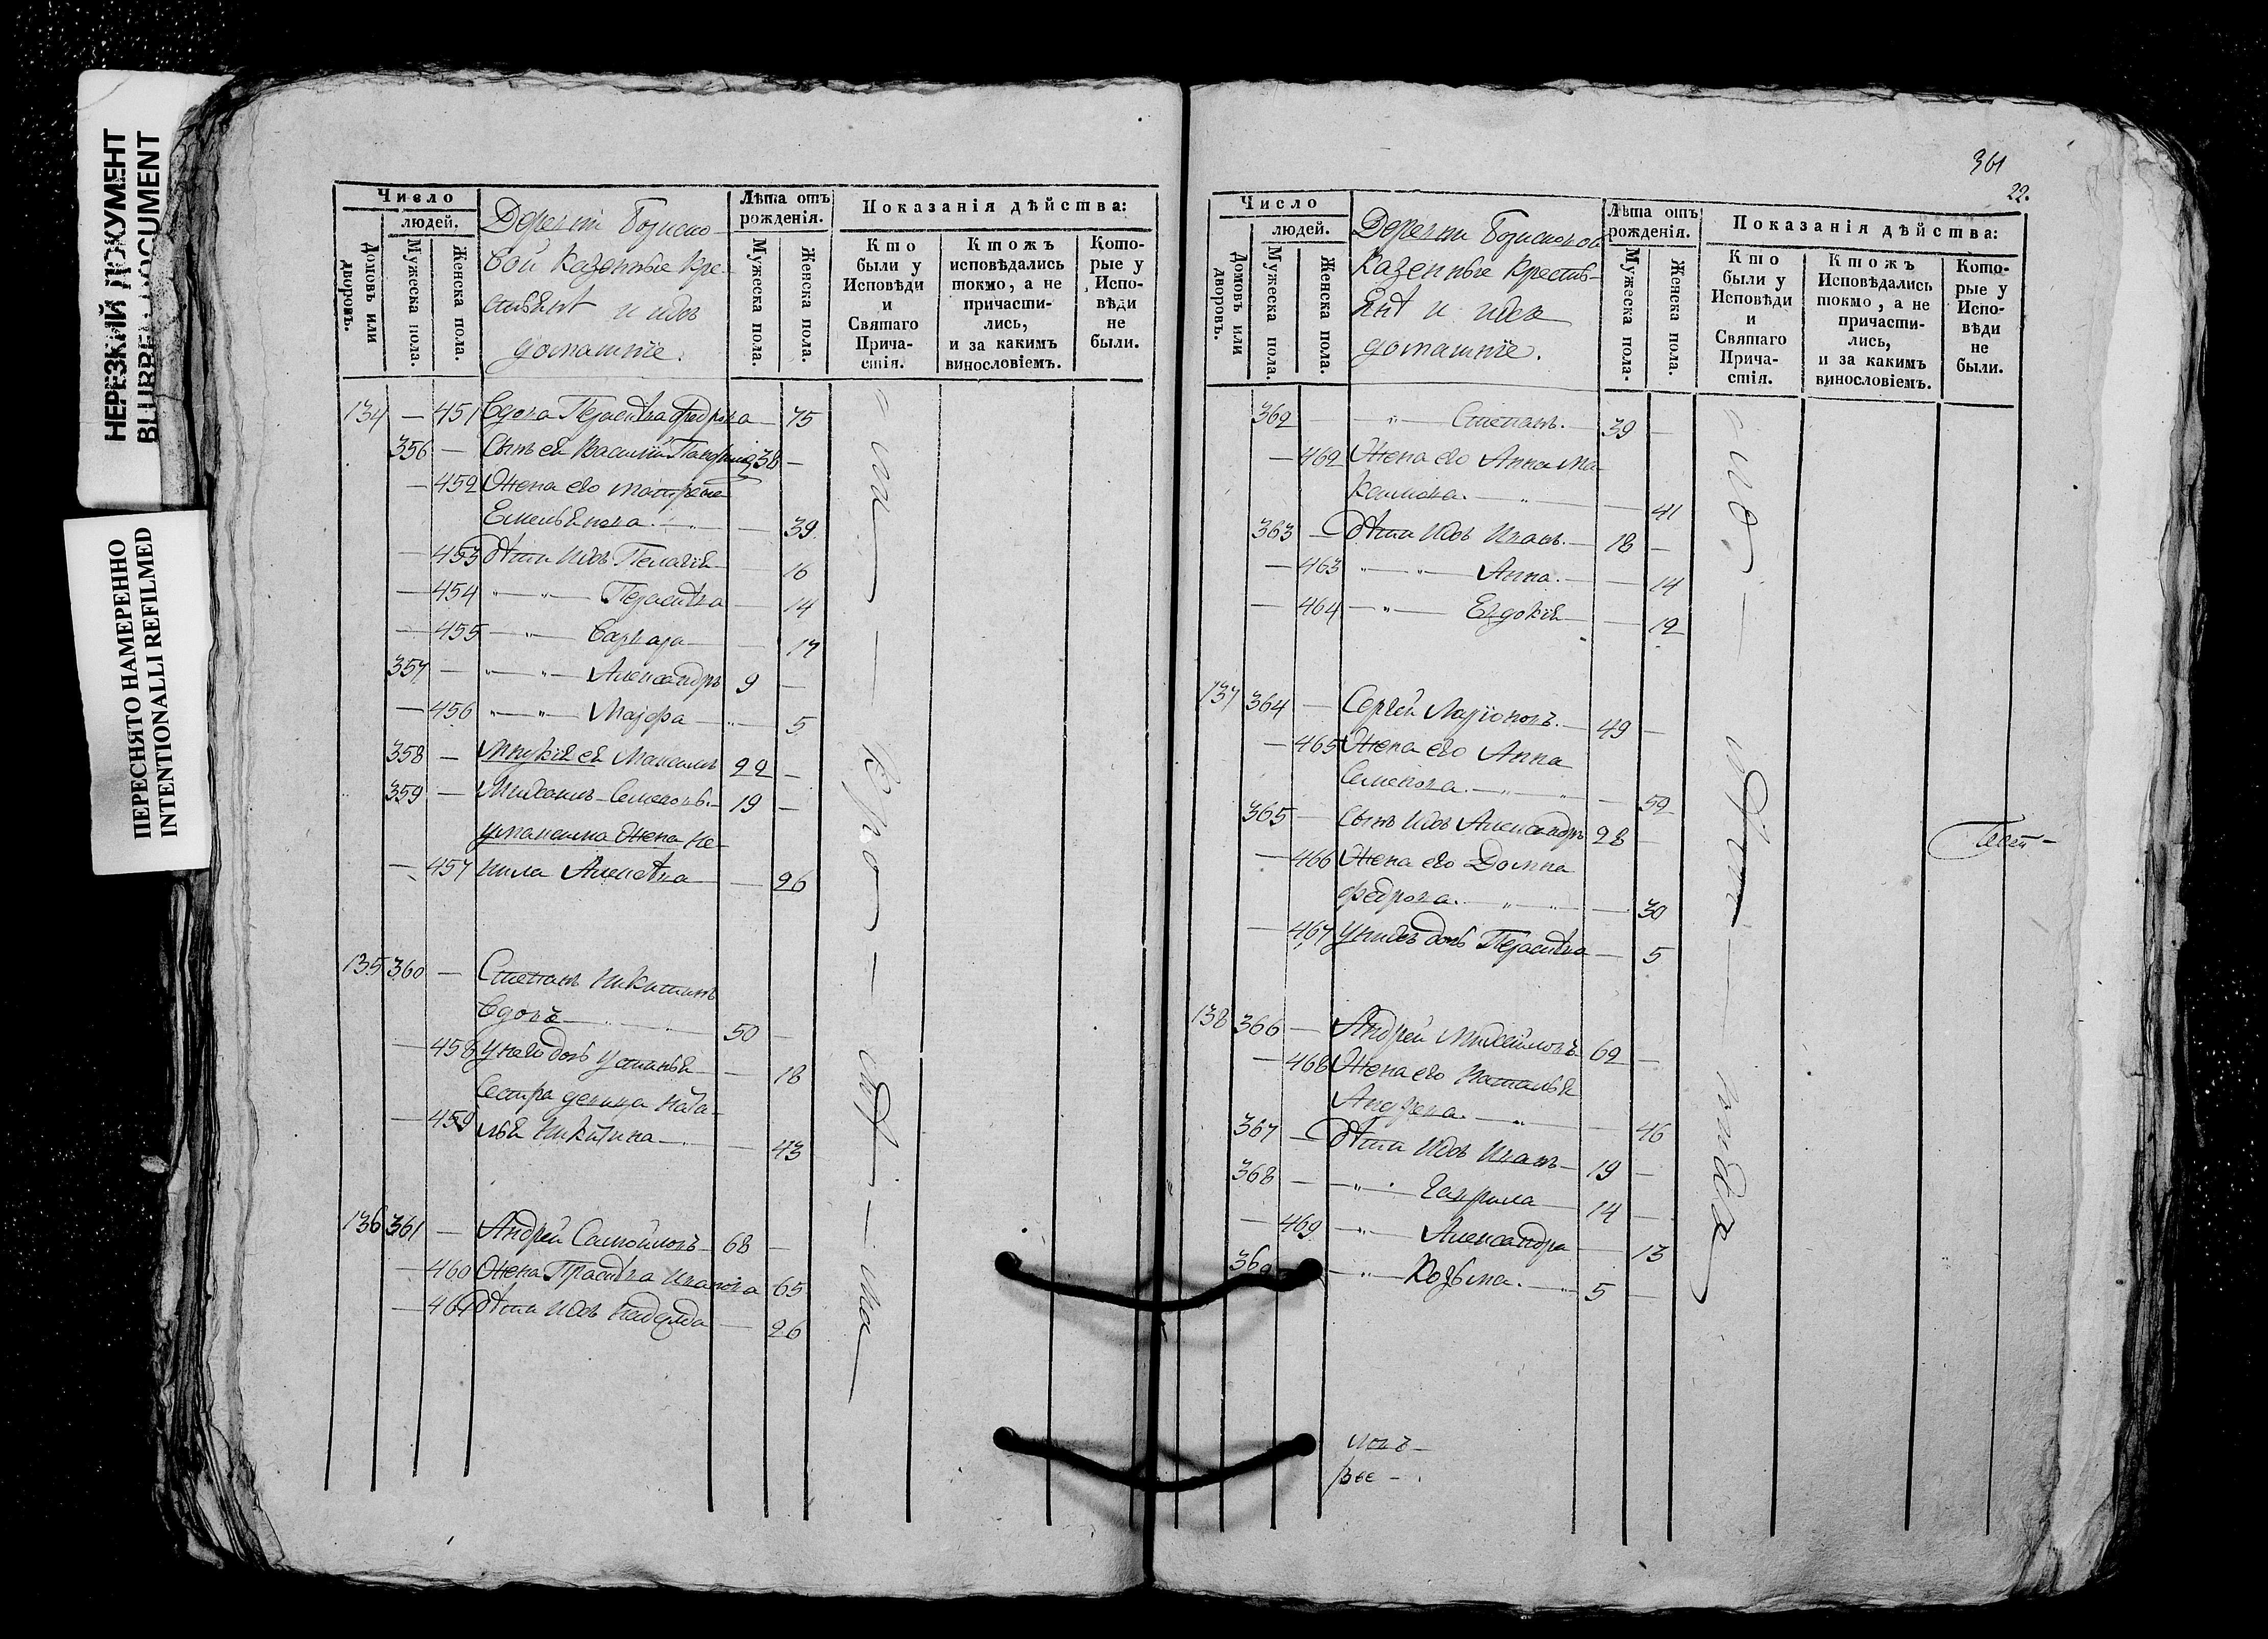 НЕРЕЗКИЙ ДОКУМЕНТ
BLURRED DOCUMENT
ПЕРЕСНЯТО НАМЕРЕННО
INTENTIONALLI REFILMED
Число
людей.
Домовъ или дворовъ.
Мужеска пола.
Женска пола.
Деревни Борисковой казенные крестьянѣ и ихъ домашніе.
Лѣта отъ рожденія.
Мужеска пола.
Женска пола.
Показанія дѣйства:
Кто были у Исповѣди и Святаго Причастія.
Ктожъ исповѣдались токмо, а не причастились, и за какимъ винословіемъ.
Которые у Исповѣди не были.
134 — 451 Вдова Парасковья Федрова — 75
356 — Сынъ ея Василий 38 —
— 452 Жена его Матрена
Емельянова — 39
— 453 Дѣти ихъ Пелагія — 16
— 454 Парасковья — 14
— 455 Варвара — 17
357 — Александръ 9 —
— 456 Марфа — 5
358 — Внуки ея Максимъ 22 —
359 — Михаилъ Семеновъ 19 —
у Максима жена Не-
— 457 нила Алексѣва — 26
135 360 — Степанъ Никитинъ
Вдовъ 50 —
— 458 У него дочь Устинья — 18
Сестра девица Ната-
— 459 лья Никитина — 43
136 361 — Андрей Самойловъ 68 —
— 460 Жена Прасковья Иванова 65
— 461 Дѣти ихъ Надежда — 26
361
22.
Число
людей.
Домовъ или дворовъ.
Мужеска пола.
Женска пола.
Деревни Борисковой
казенные крестья-
нѣ и ихъ
домашніе.
Лѣта отъ рожденія.
Мужеска пола.
Женска пола.
Показанія дѣйства:
Кто были у Исповѣди и Святаго Причастія.
Ктожъ Исповѣдались токмо, а не причастились, и за какимъ винословіемъ.
Которые у Исповѣди не были.
362 — Степанъ. 39 —
— 462 Жена его Анна Ма-
ксимова. — 41
363 — Дѣти ихъ Иванъ. 18 —
— 463 Анна. — 14
— 464 Евдокія — 12
137 364 — Сергей Ларіоновъ. 49 —
— 465 Жена его Анна
Семенова. — 52
365 — Сынъ ихъ Александръ 28 —
— 466 Жена его Домна
Федрова. — 30
— 467 У нихъ дочь Парасковья — 5
138 366 — Андрей Михайловъ 62 —
— 468 Жена его Наталья
Андреева. — 46
367 — Дѣти ихъ Иванъ 19 —
368 — Гаврила 14 —
— 469 Александра — 13
369 Козьма. 5 —